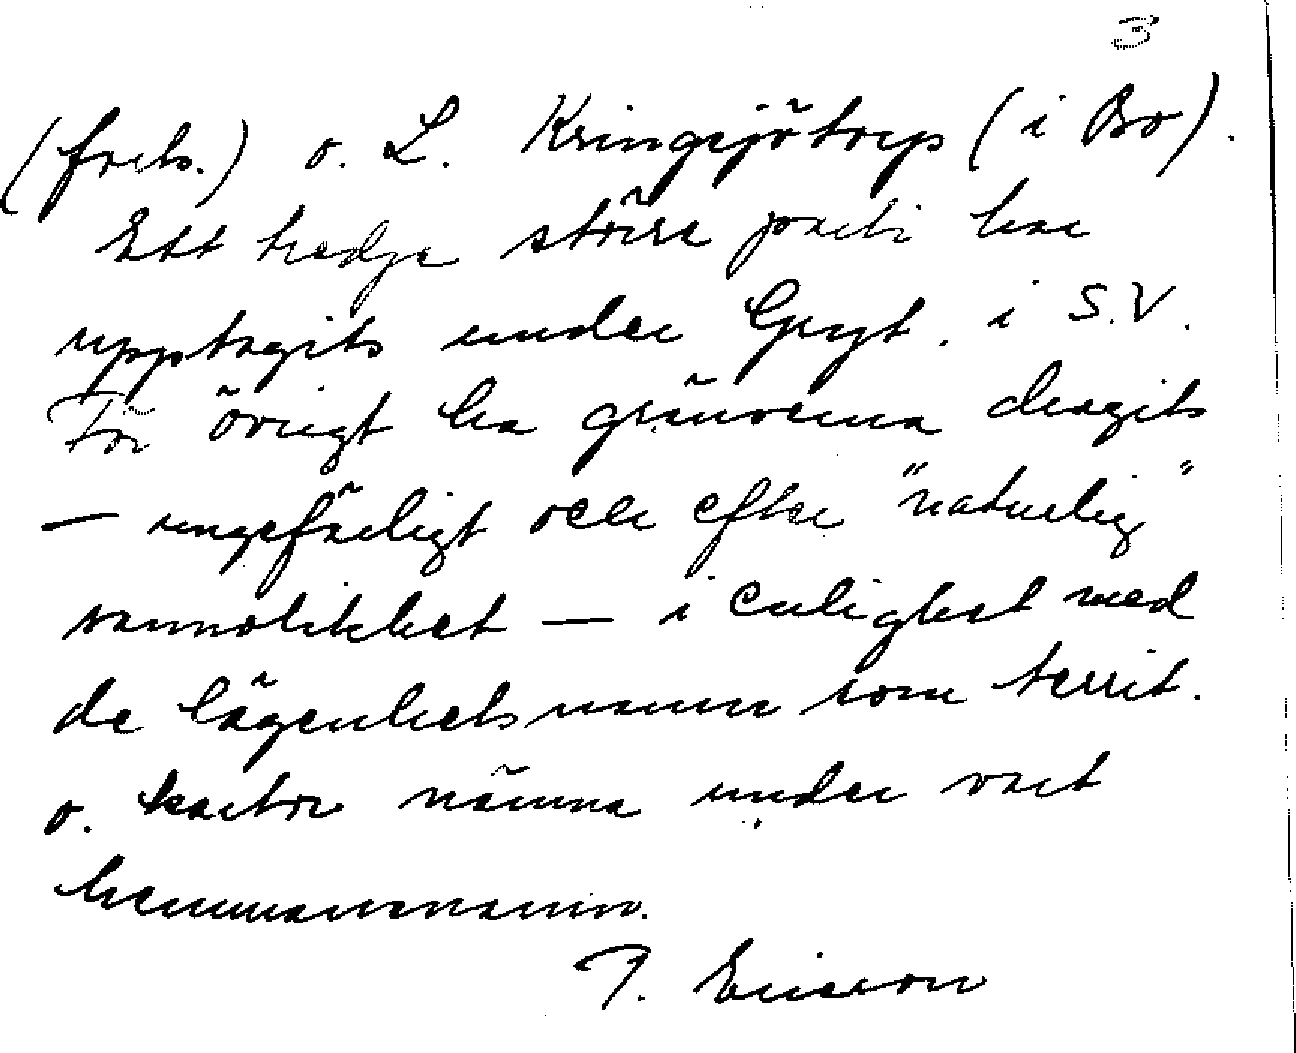 3
(frels.) o. L. Kringsjötorp (i Bo).
Ett tredje större parti har
upptagits under Gryt. i S.V.
För övrigt ha gränserna dragits
— ungefärligt och efter "naturlig"
sannolikhet — i enlighet med
de lägenhetsnamn som territ.
o. kartor nämna under vart
hemmansnamn.
Ericson